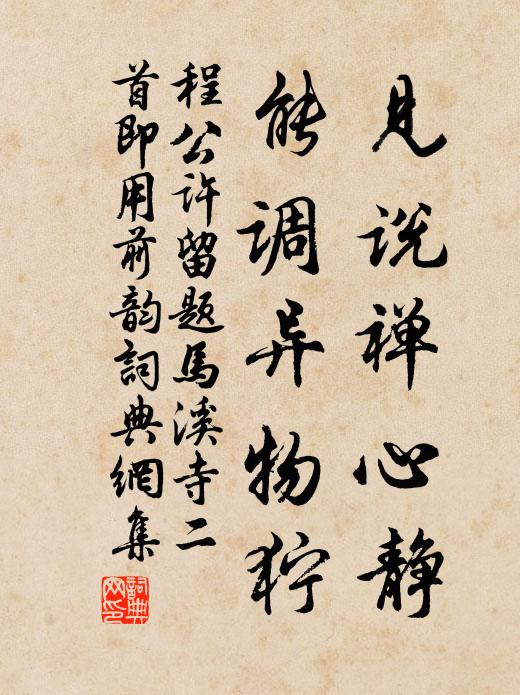 见说禅心静
能调异物狞
程公许留题马溪寺二
首即用前韵詞典網集
詞典
网印